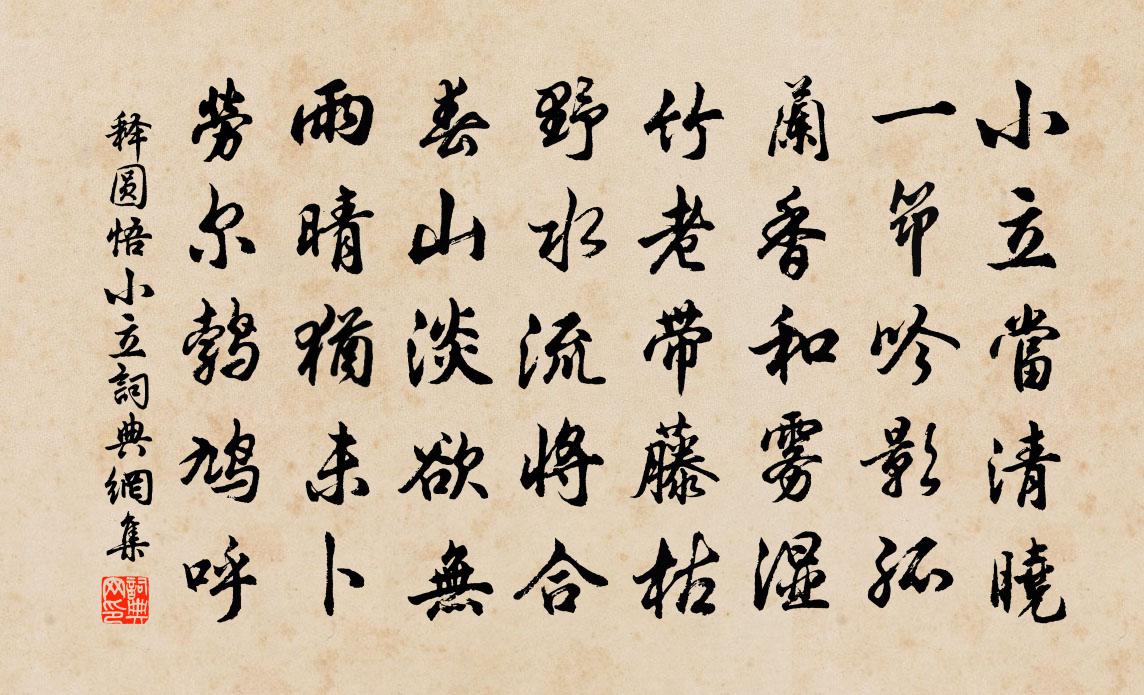 小立當清曉
一笻吟影孤
蘭香和雾湿
竹老帶藤枯
野水流將合
春山淡欲無
雨晴猶未卜
勞尔鹁鸠呼
释圆悟小立詞典網集
詞典网印